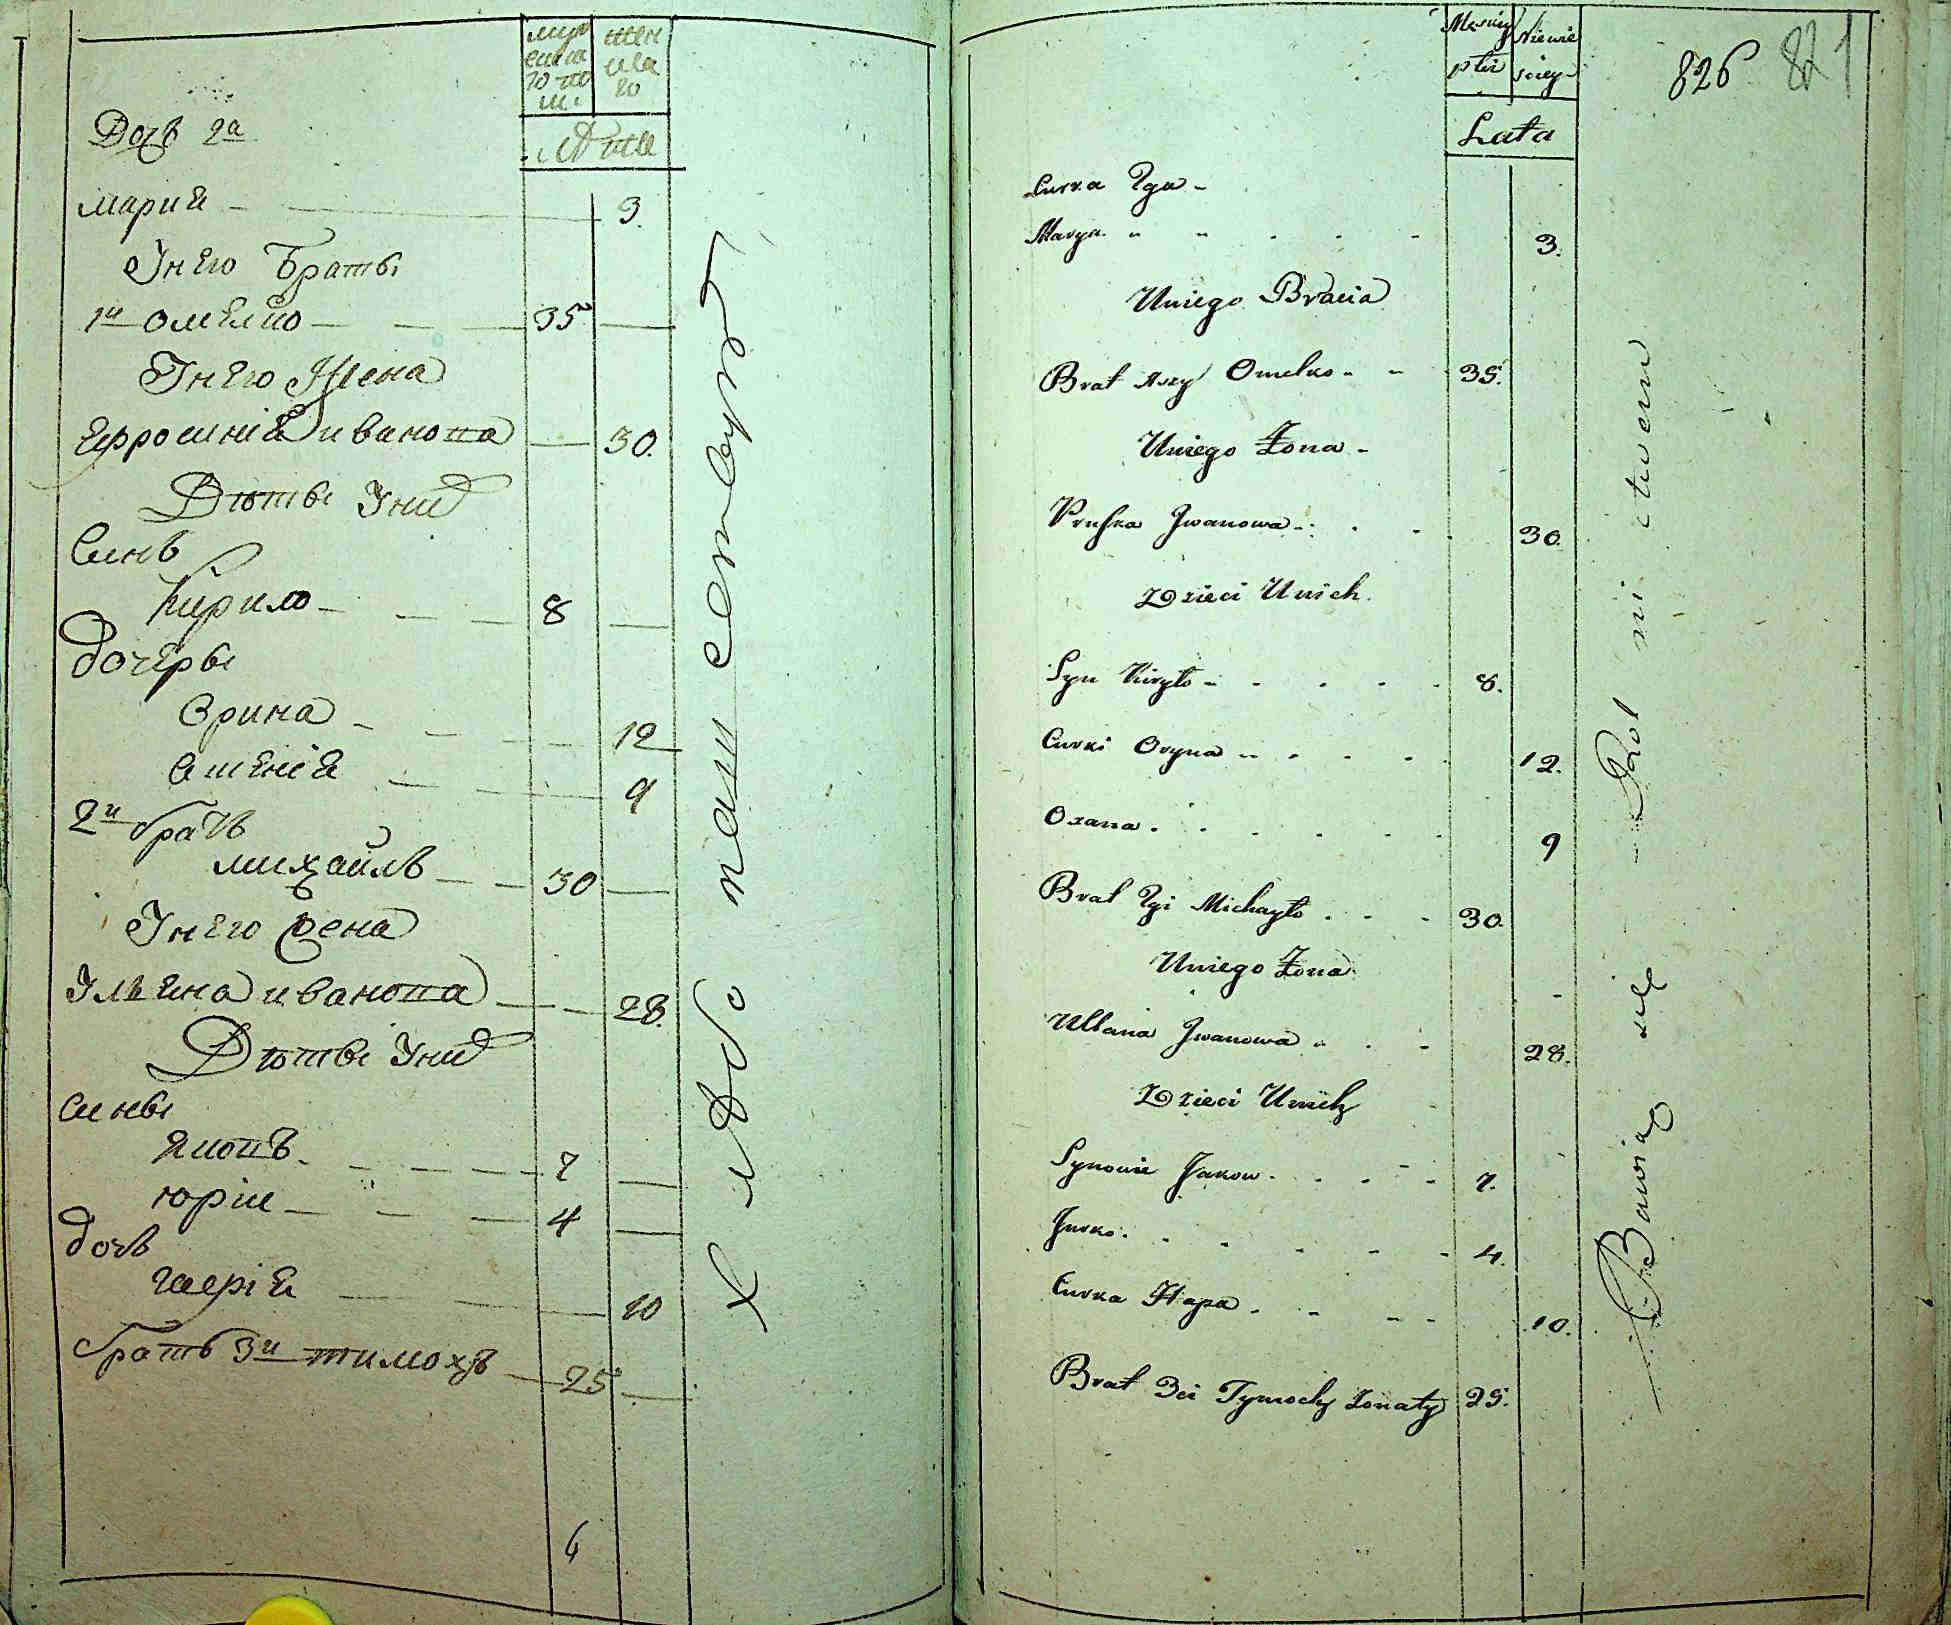 муж
ескаго
по
ш.
жен
ска
го
Лѣта
Дочь 2а
Мария 3.
У него Браты
1й Омелко 35
У него Жена
Ефросиния Иванова 30.
Дѣты У них
Синъ
Кирило 8
Дочеры
Орина 12
Ксения 9
2й братъ
Михайлъ 30
У него Жена
Ульяна Иванова 28.
Дѣты У них
Сины
Яковъ 7
Юрий 4
Дочь
Гапия 10
братъ 3й Тимохъ 25
6
Хлѣбопашествуют
826 821
Męzkiey
płci
Niewie
sciey
Lata
Curka 2ga
Marya 3.
U niego Bracia
Brat 1szy Omelko 35.
U niego Żona
Pruska Jwanowa 30.
Dzieci U nich
Syn Kiryło 8.
Curki Oryna 12.
Oxana 9
Brat 2gi Michayło 30.
U niego Żona
Ullana Jwanowa 28.
Dzieci U nich
Synowie Jakow 7.
Jurko 4.
Curka Hapa 10.
Brat 3ci Tymoch Żonaty 25.
Bawią się Rolnictwem